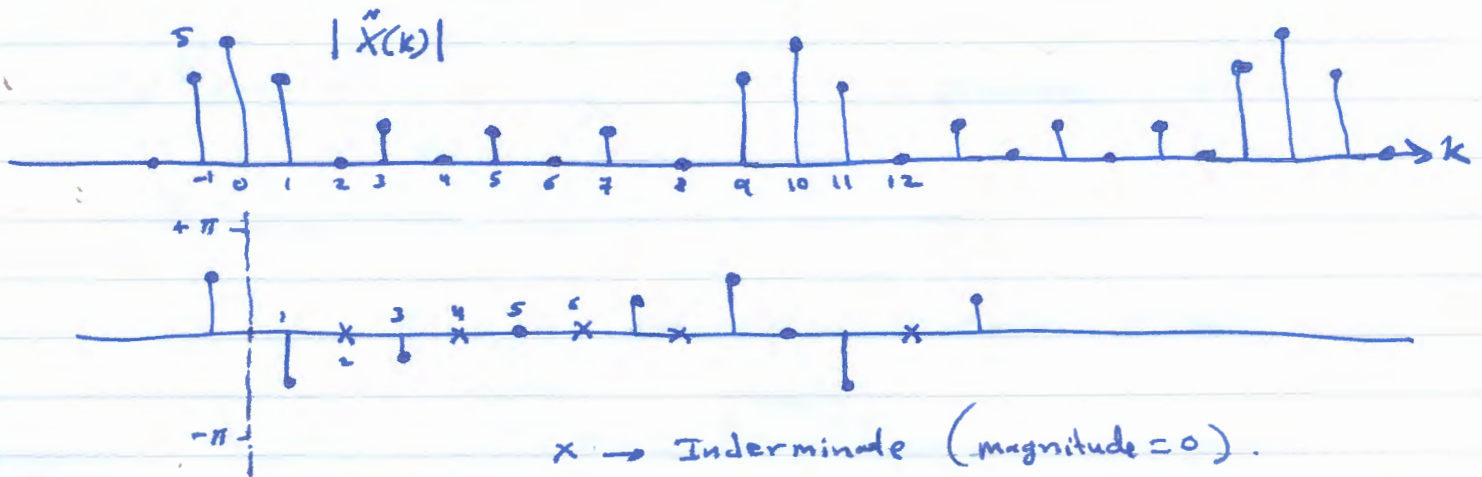 5 | X̃(k)|
-1 0 1 2 3 4 5 6 7 8 9 10 11 12 k
+π
1 2 3 4 5 6
-π
x → Inderminate (magnitude = 0).